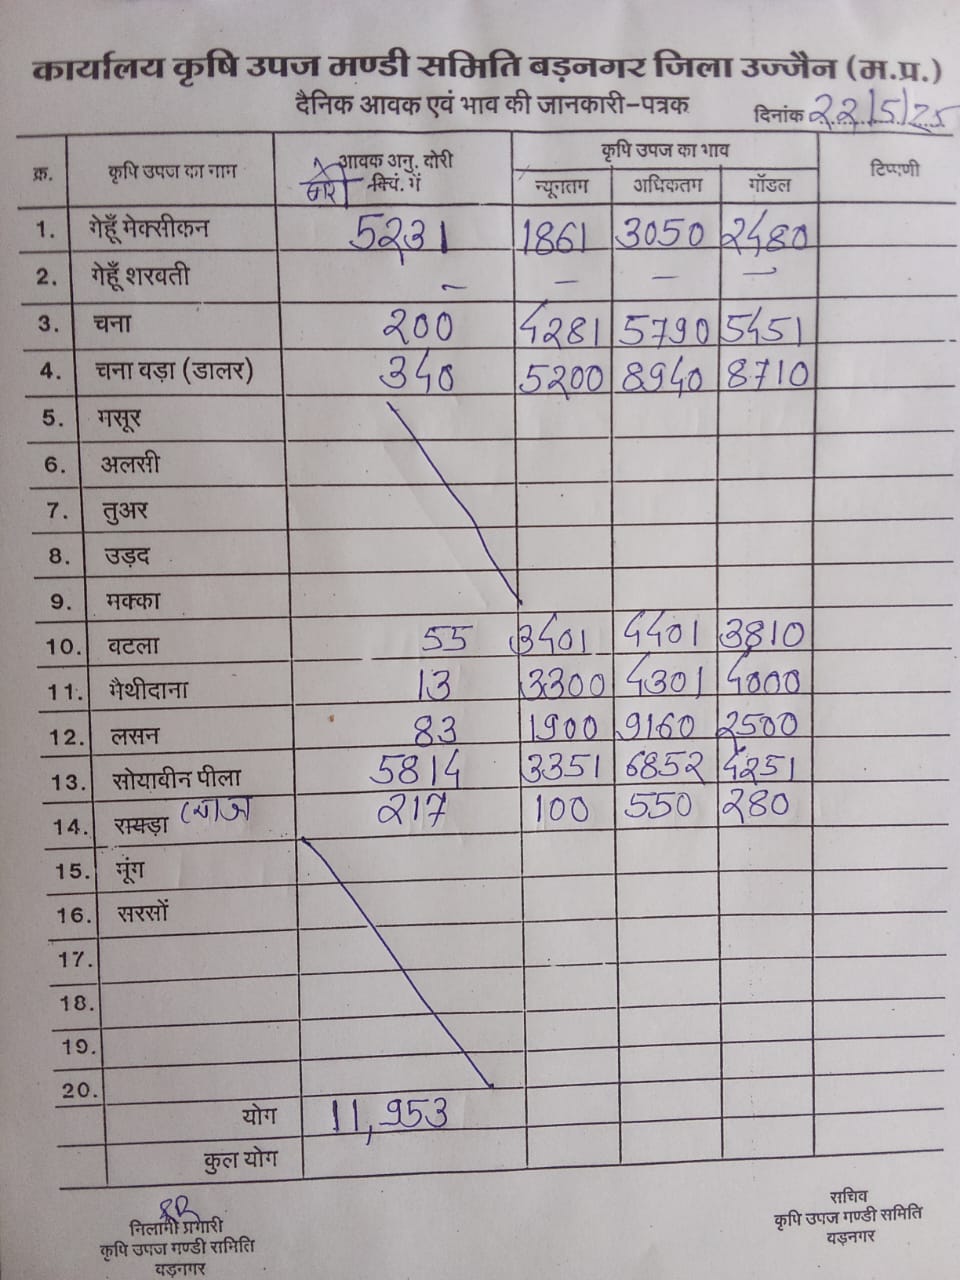 कार्यालय कृषि उपज मण्डी समिति बड़नगर जिला उज्जैन (म.प्र.)
दैनिक आवक एवं भाव की जानकारी-पत्रक
दिनांक 22/5/25
क्र. कृषि उपज का नाम आवक अनु. बोरी क्विं. में कृषि उपज का भाव टिप्पणी
बोरी न्यूनतम अधिकतम मॉडल
1. गेहूँ मेक्सीकन 5231 1861 3050 2480
2. गेहूँ शरबती - - - -
3. चना 200 4281 5790 5451
4. चना बड़ा (डालर) 340 5200 8940 8710
5. मसूर
6. अलसी
7. तुअर
8. उड़द
9. मक्का
10. बटला 55 3401 4401 3810
11. मैथीदाना 13 3300 4301 4000
12. लसन 83 1900 9160 2500
13. सोयाबीन पीला 5814 3351 6852 4251
14. रायड़ा प्याज 217 100 550 280
15. मूंग
16. सरसों
17.
18.
19.
20.
योग 11,953
कुल योग
निलामी प्रभारी
कृषि उपज मण्डी समिति
बड़नगर
सचिव
कृषि उपज मण्डी समिति
बड़नगर